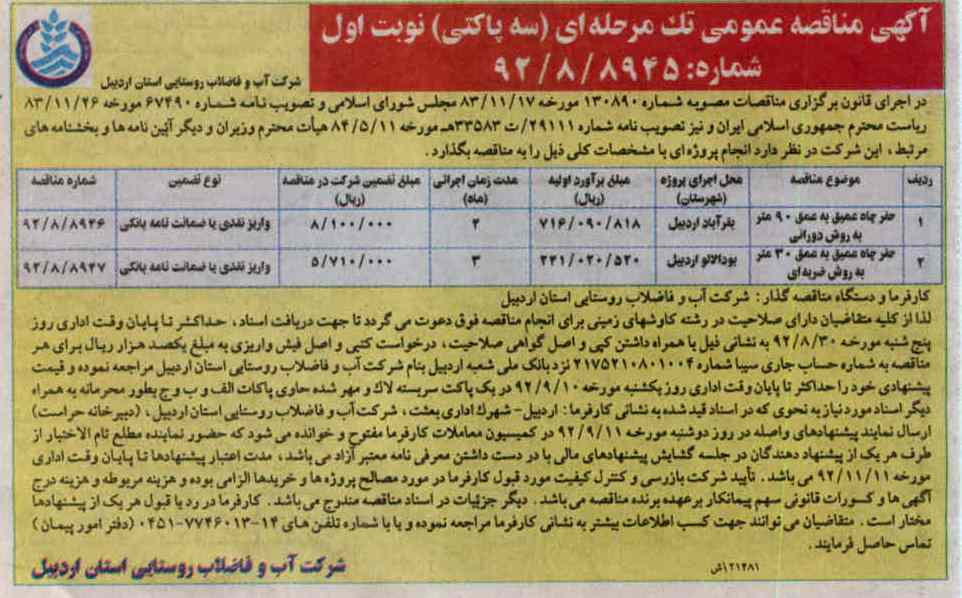 آگهی مناقصه عمومی تك مرحله ای (سه پاکتی) نوبت اول
شماره: ۹۲/۸/۸۹۴۵
شرکت آب و فاضلاب روستایی استان اردبیل
در اجرای قانون برگزاری مناقصات مصوبه شماره ۱۳۰۸۹۰ مورخه ۸۳/۱۱/۱۷ مجلس شورای اسلامی و تصویب نامه شماره ۶۷۴۹۰ مورخه ۸۳/۱۱/۲۶
ریاست محترم جمهوری اسلامی ایران و نیز تصویب نامه شماره ۲۹۱۱۱/ت ۳۳۵۸۳هـ مورخه ۸۴/۵/۱۱ هیأت محترم وزیران و دیگر آئین نامه ها و بخشنامه های
مرتبط ، این شرکت در نظر دارد انجام پروژه ای با مشخصات کلی ذیل را به مناقصه بگذارد .
ردیف موضوع مناقصه محل اجرای پروژه (شهرستان) مبلغ برآورد اولیه (ریال) مدت زمان اجرائی (ماه) مبلغ تضمین شرکت در مناقصه (ریال) نوع تضمین شماره مناقصه
۱ حفر چاه عمیق به عمق ۹۰ متر به روش دورانی بقرآباد اردبیل ۷۱۶/۰۹۰/۸۱۸ ۲ ۸/۱۰۰/۰۰۰ واریز نقدی یا ضمانت نامه بانکی ۹۲/۸/۸۹۴۶
۲ حفر چاه عمیق به عمق ۳۰ متر به روش ضربه ای بودالالو اردبیل ۲۴۱/۰۲۰/۵۲۰ ۳ ۵/۷۱۰/۰۰۰ واریز نقدی یا ضمانت نامه بانکی ۹۲/۸/۸۹۴۷
کارفرما و دستگاه مناقصه گذار: شرکت آب و فاضلاب روستایی استان اردبیل
لذا از کلیه متقاضیان دارای صلاحیت در رشته کاوشهای زمینی برای انجام مناقصه فوق دعوت می گردد تا جهت دریافت اسناد ، حداکثر تا پایان وقت اداری روز
پنج شنبه مورخه ۹۲/۸/۳۰ به نشانی ذیل با همراه داشتن کپی و اصل گواهی صلاحیت ، درخواست کتبی و اصل فیش واریزی به مبلغ یکصد هزار ریال برای هر
مناقصه به شماره حساب جاری سیبا شماره ۲۱۷۵۲۱۰۸۰۱۰۰۴ نزد بانک ملی شعبه اردبیل بنام شرکت آب و فاضلاب روستایی استان اردبیل مراجعه نموده و قیمت
پیشنهادی خود را حداکثر تا پایان وقت اداری روز یکشنبه مورخه ۹۲/۹/۱۰ در یک پاکت سربسته لاک و مهر شده حاوی پاکات الف و ب و ج بطور محرمانه به همراه
دیگر اسناد مورد نیاز به نحوی که در اسناد قید شده به نشانی کارفرما : اردبیل - شهرک اداری بعثت ، شرکت آب و فاضلاب روستایی استان اردبیل ، (دبیرخانه حراست)
ارسال نمایند پیشنهادهای واصله در روز دوشنبه مورخه ۹۲/۹/۱۱ در کمیسیون معاملات کارفرما مفتوح و خوانده می شود که حضور نماینده مطلع تام الاختیار از
طرف هر یک از پیشنهاد دهندگان در جلسه گشایش پیشنهادهای مالی با در دست داشتن معرفی نامه معتبر آزاد می باشد ، مدت اعتبار پیشنهادها تا پایان وقت اداری
مورخه ۹۲/۱۱/۱۱ می باشد . تأیید شرکت بازرسی و کنترل کیفیت مورد قبول کارفرما در مورد مصالح پروژه ها و خریدها الزامی بوده و هزینه مربوطه و هزینه درج
آگهی ها و کسورات قانونی سهم پیمانکار برعهده برنده مناقصه می باشد . دیگر جزئیات در اسناد مناقصه مندرج می باشد . کارفرما در رد یا قبول هر یک از پیشنهادها
مختار است . متقاضیان می توانند جهت کسب اطلاعات بیشتر به نشانی کارفرما مراجعه نموده و یا با شماره تلفن های ۱۴-۷۷۴۶۰۱۳-۰۴۵۱ (دفتر امور پیمان )
تماس حاصل فرمایند .
۲۱۴۸۱/ش
شرکت آب و فاضلاب روستایی استان اردبیل